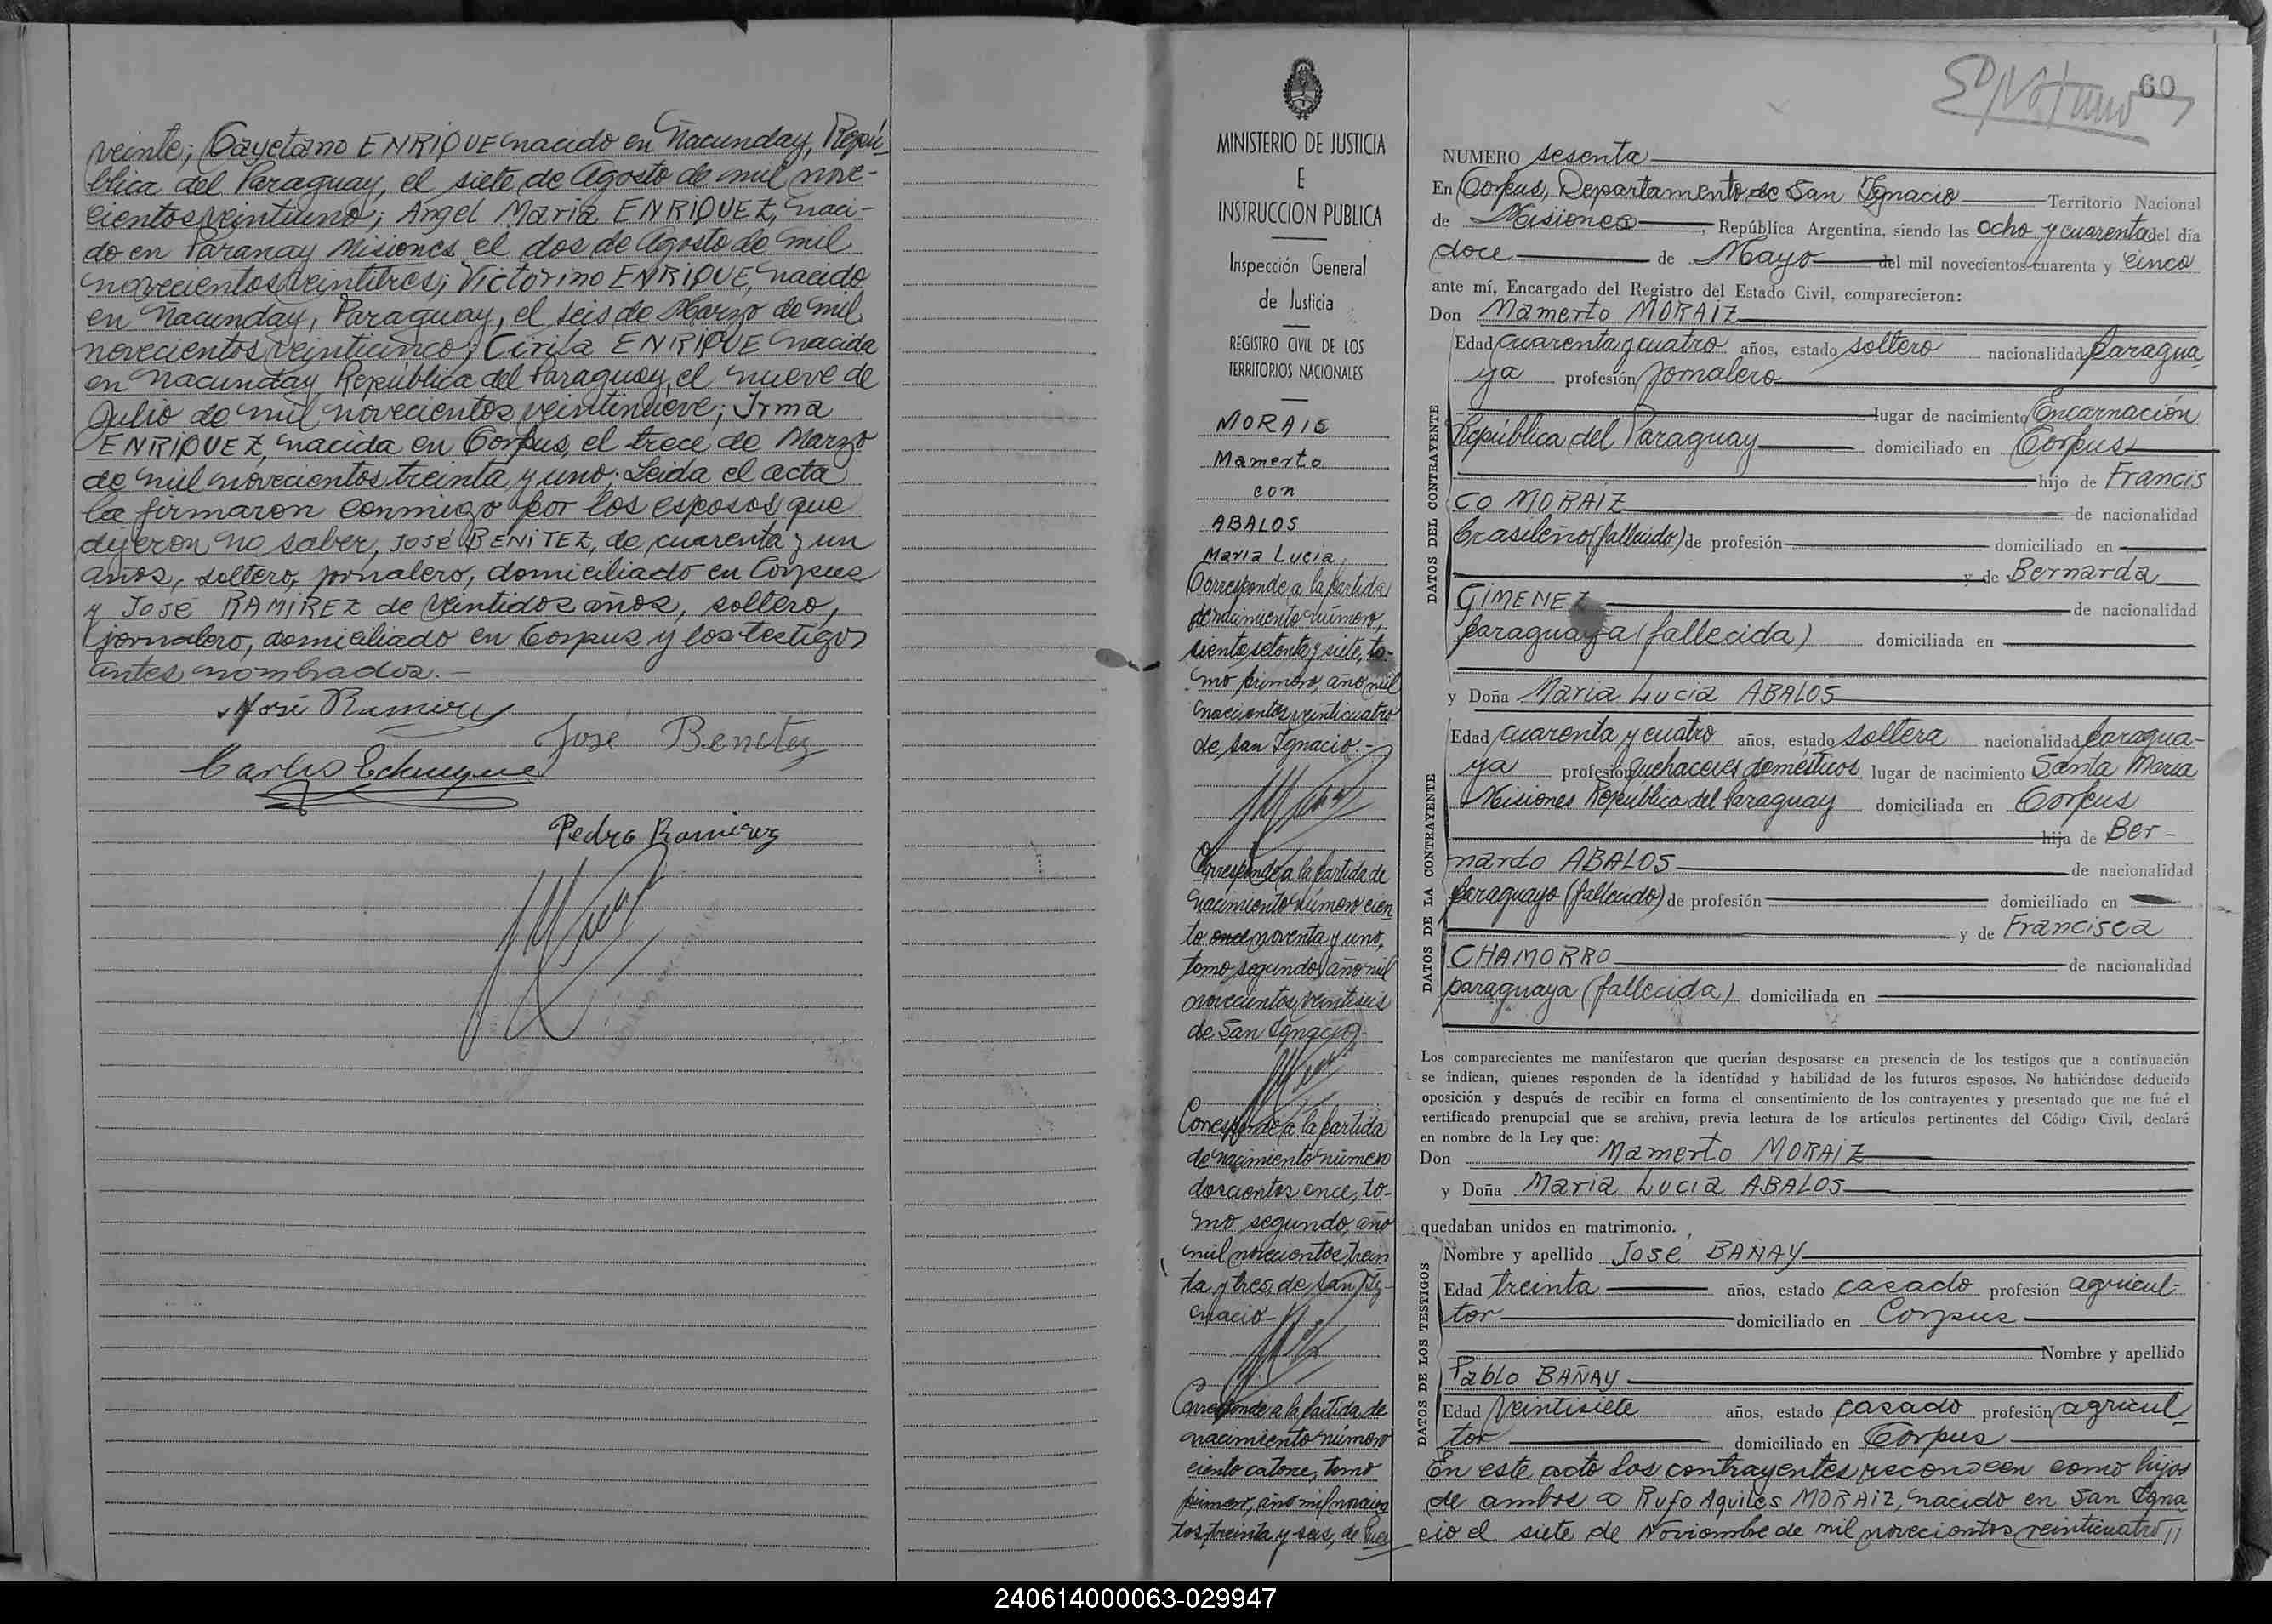 veinte; Cayetano ENRIQUE nacido en Ñacunday, Repú-
blica del Paraguay, el siete de Agosto de mil nove-
cientos veintiuno; Angel Maria ENRIQUEZ, naci-
do en Paranay Misiones el dos de Agosto de mil
novecientos veintitres; Victorino ENRIQUE, nacido
en Ñacunday, Paraguay, el seis de Marzo de mil
novecientos veinticinco; Cirila ENRIQUE nacida
en Ñacunday, República del Paraguay, el nueve de
Julio de mil novecientos veintinueve; Irma
ENRIQUEZ, nacida en Corpus, el trece de Marzo
de mil novecientos treinta y uno. Leida el acta
la firmaron conmigo por los esposos que
dijeron no saber, JOSÉ BENITEZ, de cuarenta y un
años, soltero, jornalero, domiciliado en Corpus
y JOSÉ RAMIREZ de veintidos años, soltero,
jornalero, domiciliado en Corpus y los testigos
antes nombrados.-
José Ramirez
José Benitez
Carlos
Pedro Ramirez
MINISTERIO DE JUSTICIA
E
INSTRUCCION PUBLICA
Inspección General
de Justicia
REGISTRO CIVIL DE LOS
TERRITORIOS NACIONALES
MORAIS
Mamerto
con
ABALOS
Maria Lucia
Corresponde a la partida
de nacimiento número,
siento setenta y siete, to-
mo primero, año mil
novecientos veinticuatro
de San Ignacio.-
Corresponde a la partida de
nacimiento número cien
to once noventa y uno,
tomo segundo, año mil
novecientos veintiseis
de San Ignacio.
Corresponde a la partida
de nacimiento número
doscientos once, to-
mo segundo, año
mil novecientos trein
ta y tres, de San Ig-
nacio-
Corresponde a la partida de
nacimiento número
ciento catorce, tomo
primero, año mil novecien
tos treinta y seis, de
60
NUMERO sesenta
En Corpus, Departamento de San Ignacio Territorio Nacional
de Misiones, República Argentina, siendo las ocho y cuarenta del día
doce de Mayo del mil novecientos cuarenta y cinco
ante mí, Encargado del Registro del Estado Civil, comparecieron:
Don Mamerto MORAIZ
DATOS DEL CONTRAYENTE
Edad cuarenta y cuatro años, estado soltero nacionalidad paragua
ya profesión jornalero
lugar de nacimiento Encarnación
República del Paraguay domiciliado en Corpus
hijo de Francis
co MORAIZ de nacionalidad
brasileño (fallecido) de profesión domiciliado en
y de Bernarda
GIMENEZ de nacionalidad
paraguaya (fallecida) domiciliada en
y Doña Maria Lucia ABALOS
DATOS DE LA CONTRAYENTE
Edad cuarenta y cuatro años, estado soltera nacionalidad paragua-
ya profesión quehaceres domésticos lugar de nacimiento Santa Maria
Misiones República del Paraguay domiciliada en Corpus
hija de Ber-
nardo ABALOS de nacionalidad
paraguayo (fallecido) de profesión domiciliado en
y de Francisca
CHAMORRO de nacionalidad
paraguaya (fallecida) domiciliada en
Los comparecientes me manifestaron que querían desposarse en presencia de los testigos que a continuación
se indican, quienes responden de la identidad y habilidad de los futuros esposos. No habiéndose deducido
oposición y después de recibir en forma el consentimiento de los contrayentes y presentado que me fué el
certificado prenupcial que se archiva, previa lectura de los artículos pertinentes del Código Civil, declaré
en nombre de la Ley que:
Don Mamerto MORAIZ
y Doña Maria Lucia ABALOS
quedaban unidos en matrimonio.
DATOS DE LOS TESTIGOS
Nombre y apellido José BAÑAY
Edad treinta años, estado casado profesión agricul-
tor domiciliado en Corpus
Nombre y apellido
Pablo BAÑAY
Edad veintisiete años, estado casado profesión agricul-
tor domiciliado en Corpus
En este acto los contrayentes reconocen como hijos
de ambos a Rufo Aquiles MORAIZ, nacido en San Igna
cio el siete de Noviembre de mil novecientos veinticuatro //
240614000063-029947